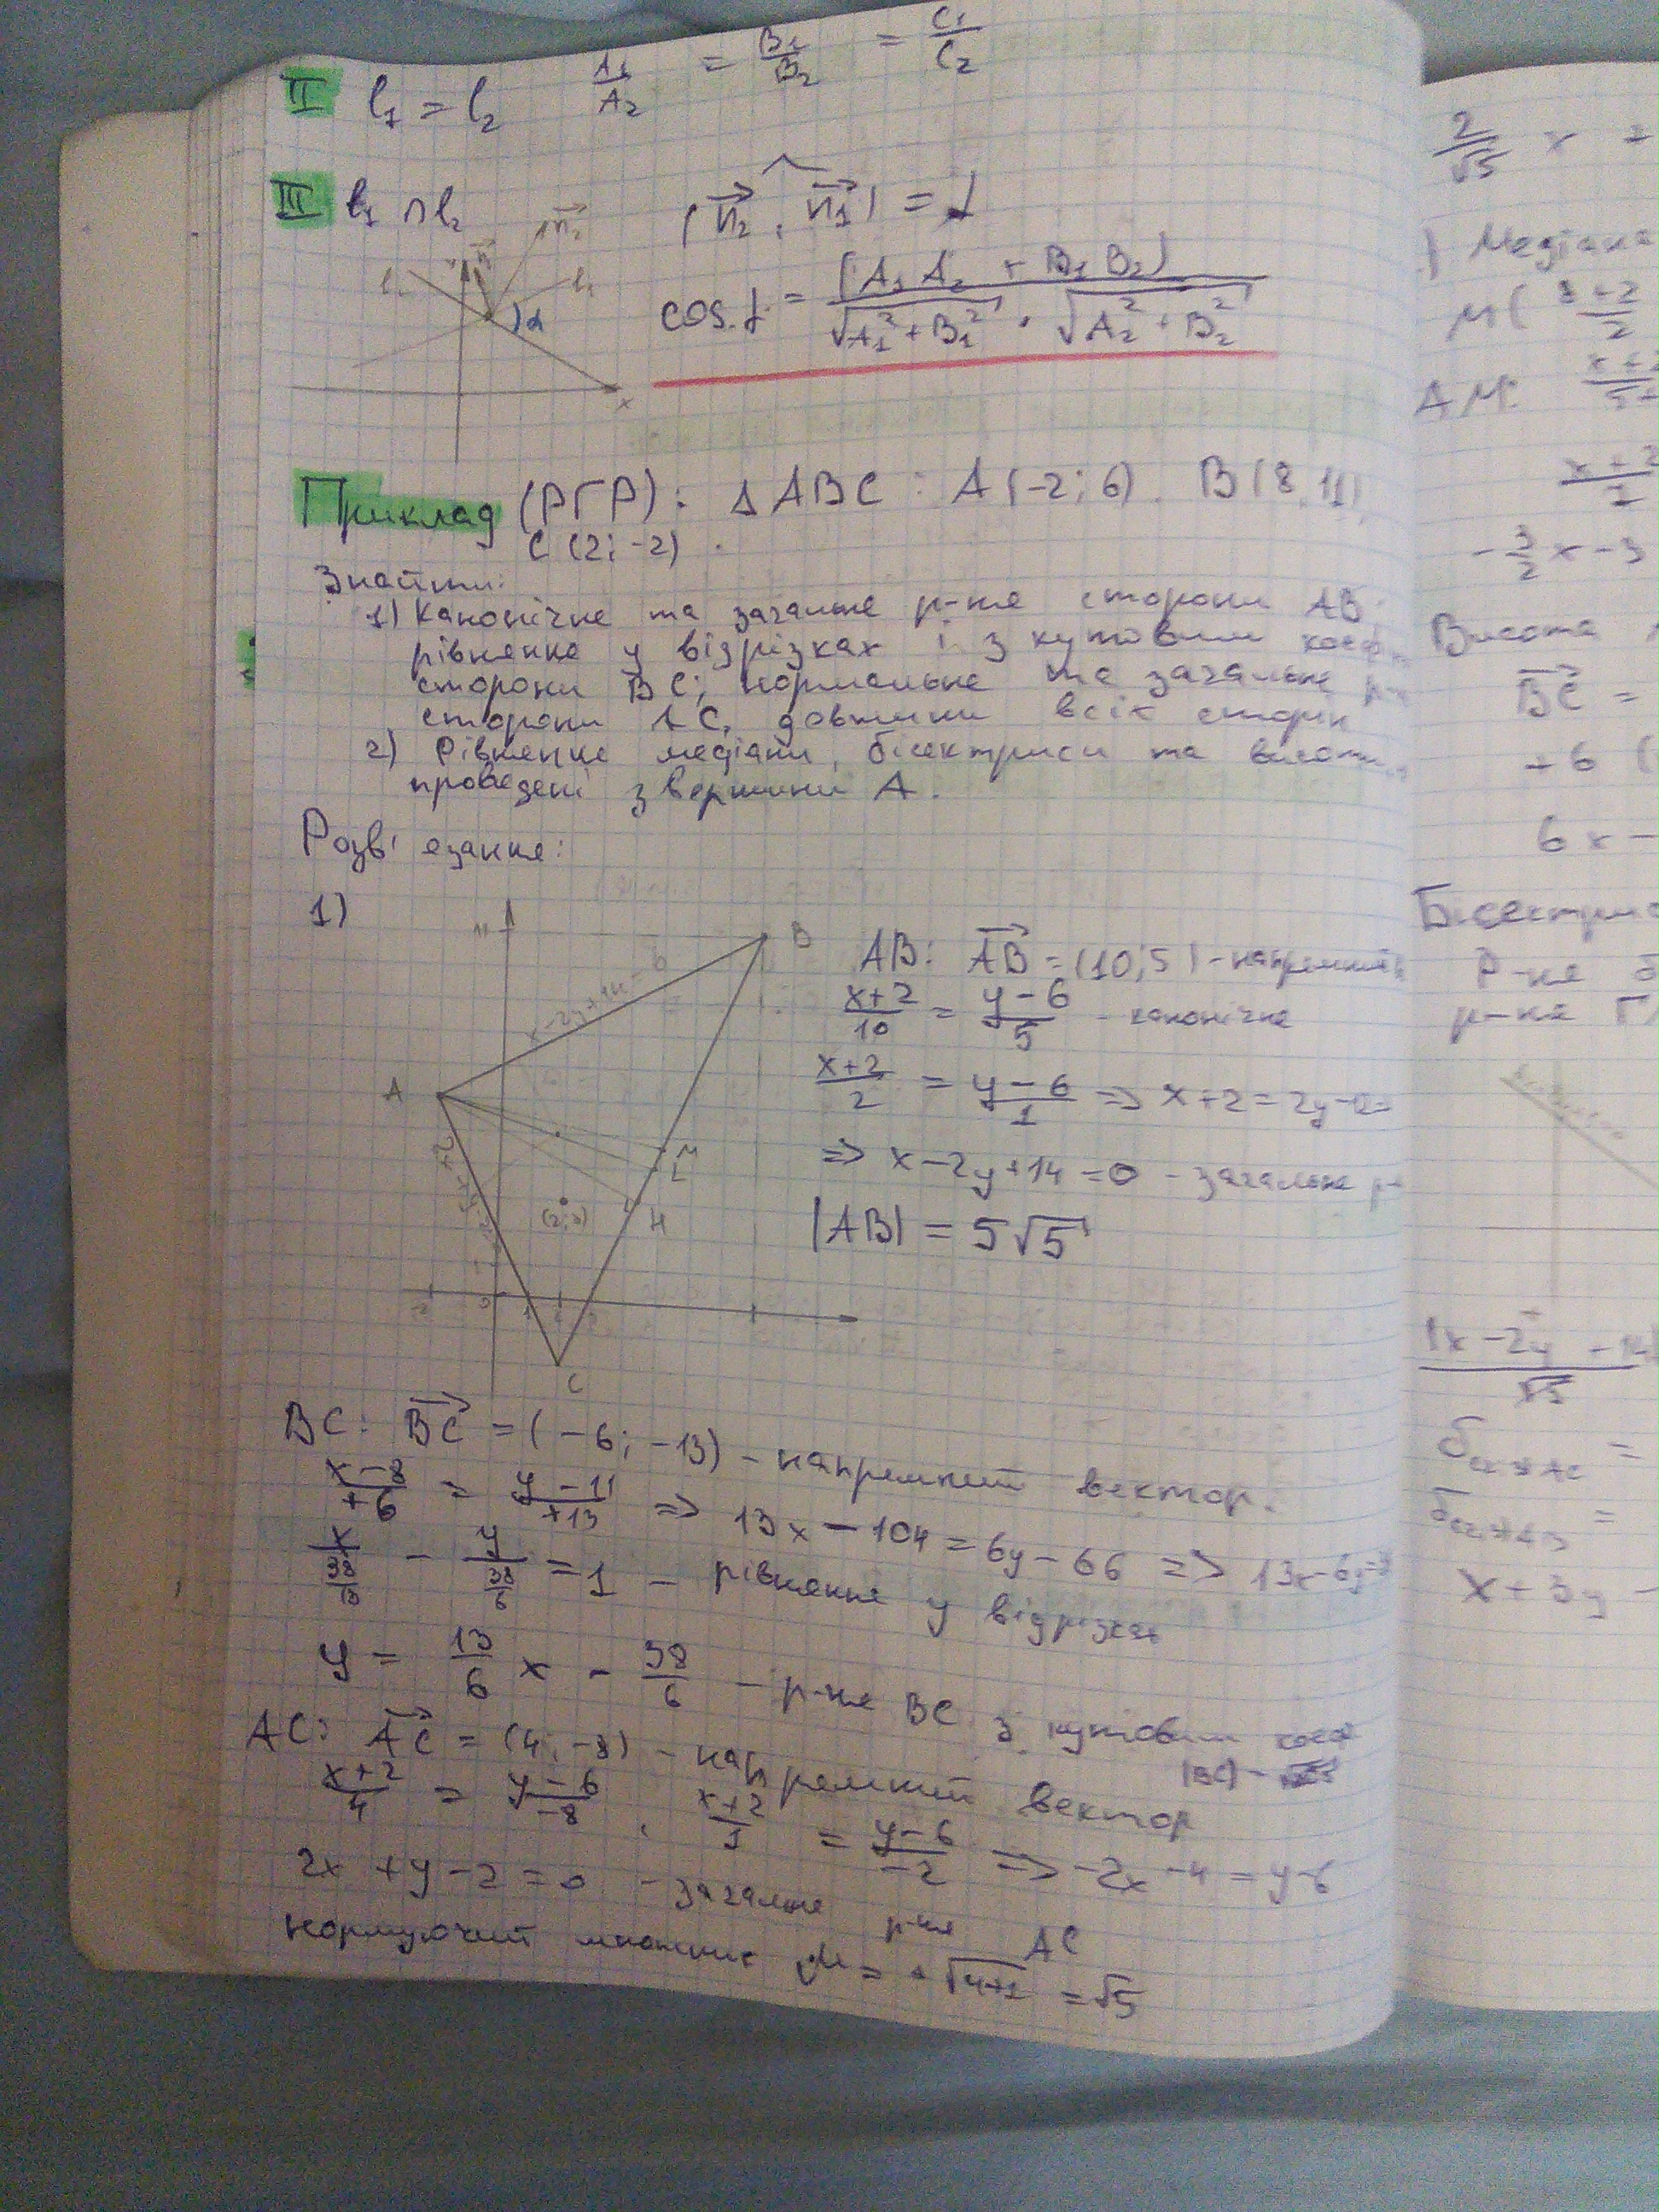 II l₁ = l₂ A₁/A₂ = B₁/B₂ = C₁/C₂
III l₁ ∩ l₂ (n₂, n₁) = α
cos α = (A₁A₂ + B₁B₂) / (√(A₁² + B₁²) · √(A₂² + B₂²))
Приклад (РГР): Δ ABC : A(-2; 6) B(8, 11)
C(2; -2)
Знайти:
1) Канонічне та загальне р-ня сторони AB;
рівняння у відрізках і з кутовим коеф.
сторони BC; нормальне та загальне р-ня
сторони AC, довжини всіх сторін
2) Рівняння медіани, бісектриси та висоти,
проведені з вершини A.
Розв'язання:
1)
11 B
x-2y+14=0
A
M
L
H
(2;3)
-2 0 1 2
C
AB: AB = (10; 5) - напрямний
(x+2)/10 = (y-6)/5 - канонічне
(x+2)/2 = (y-6)/1 => x+2 = 2y-12=
=> x-2y+14=0 - загальне р-
|AB| = 5√5
BC: BC = (-6; -13) - напрямний вектор.
(x-8)/+6 = (y-11)/+13 => 13x-104 = 6y-66 => 13x-6y-3
x/(38/13) - y/(38/6) = 1 - рівняння у відрізках
y = 13/6 x - 38/6 - р-ня BC з кутовим коеф
|BC| =
AC: AC = (4; -8) - напрямний вектор
(x+2)/4 = (y-6)/-8, (x+2)/1 = (y-6)/-2 => -2x-4 = y-6
2x+y-2=0 - загальне р-ня AC
Нормуючий множник μ = +√(4+1) = √5
2/√5 x +
Медіана
M( 8+2/2
AM: x+2/5+
x+2/7
-3/2 x - 3
Висота
BC =
+6 (
6x -
Бісектриса
Р-ня б
р-ня
|x-2y+14|/√5
=
=
x + 3y -